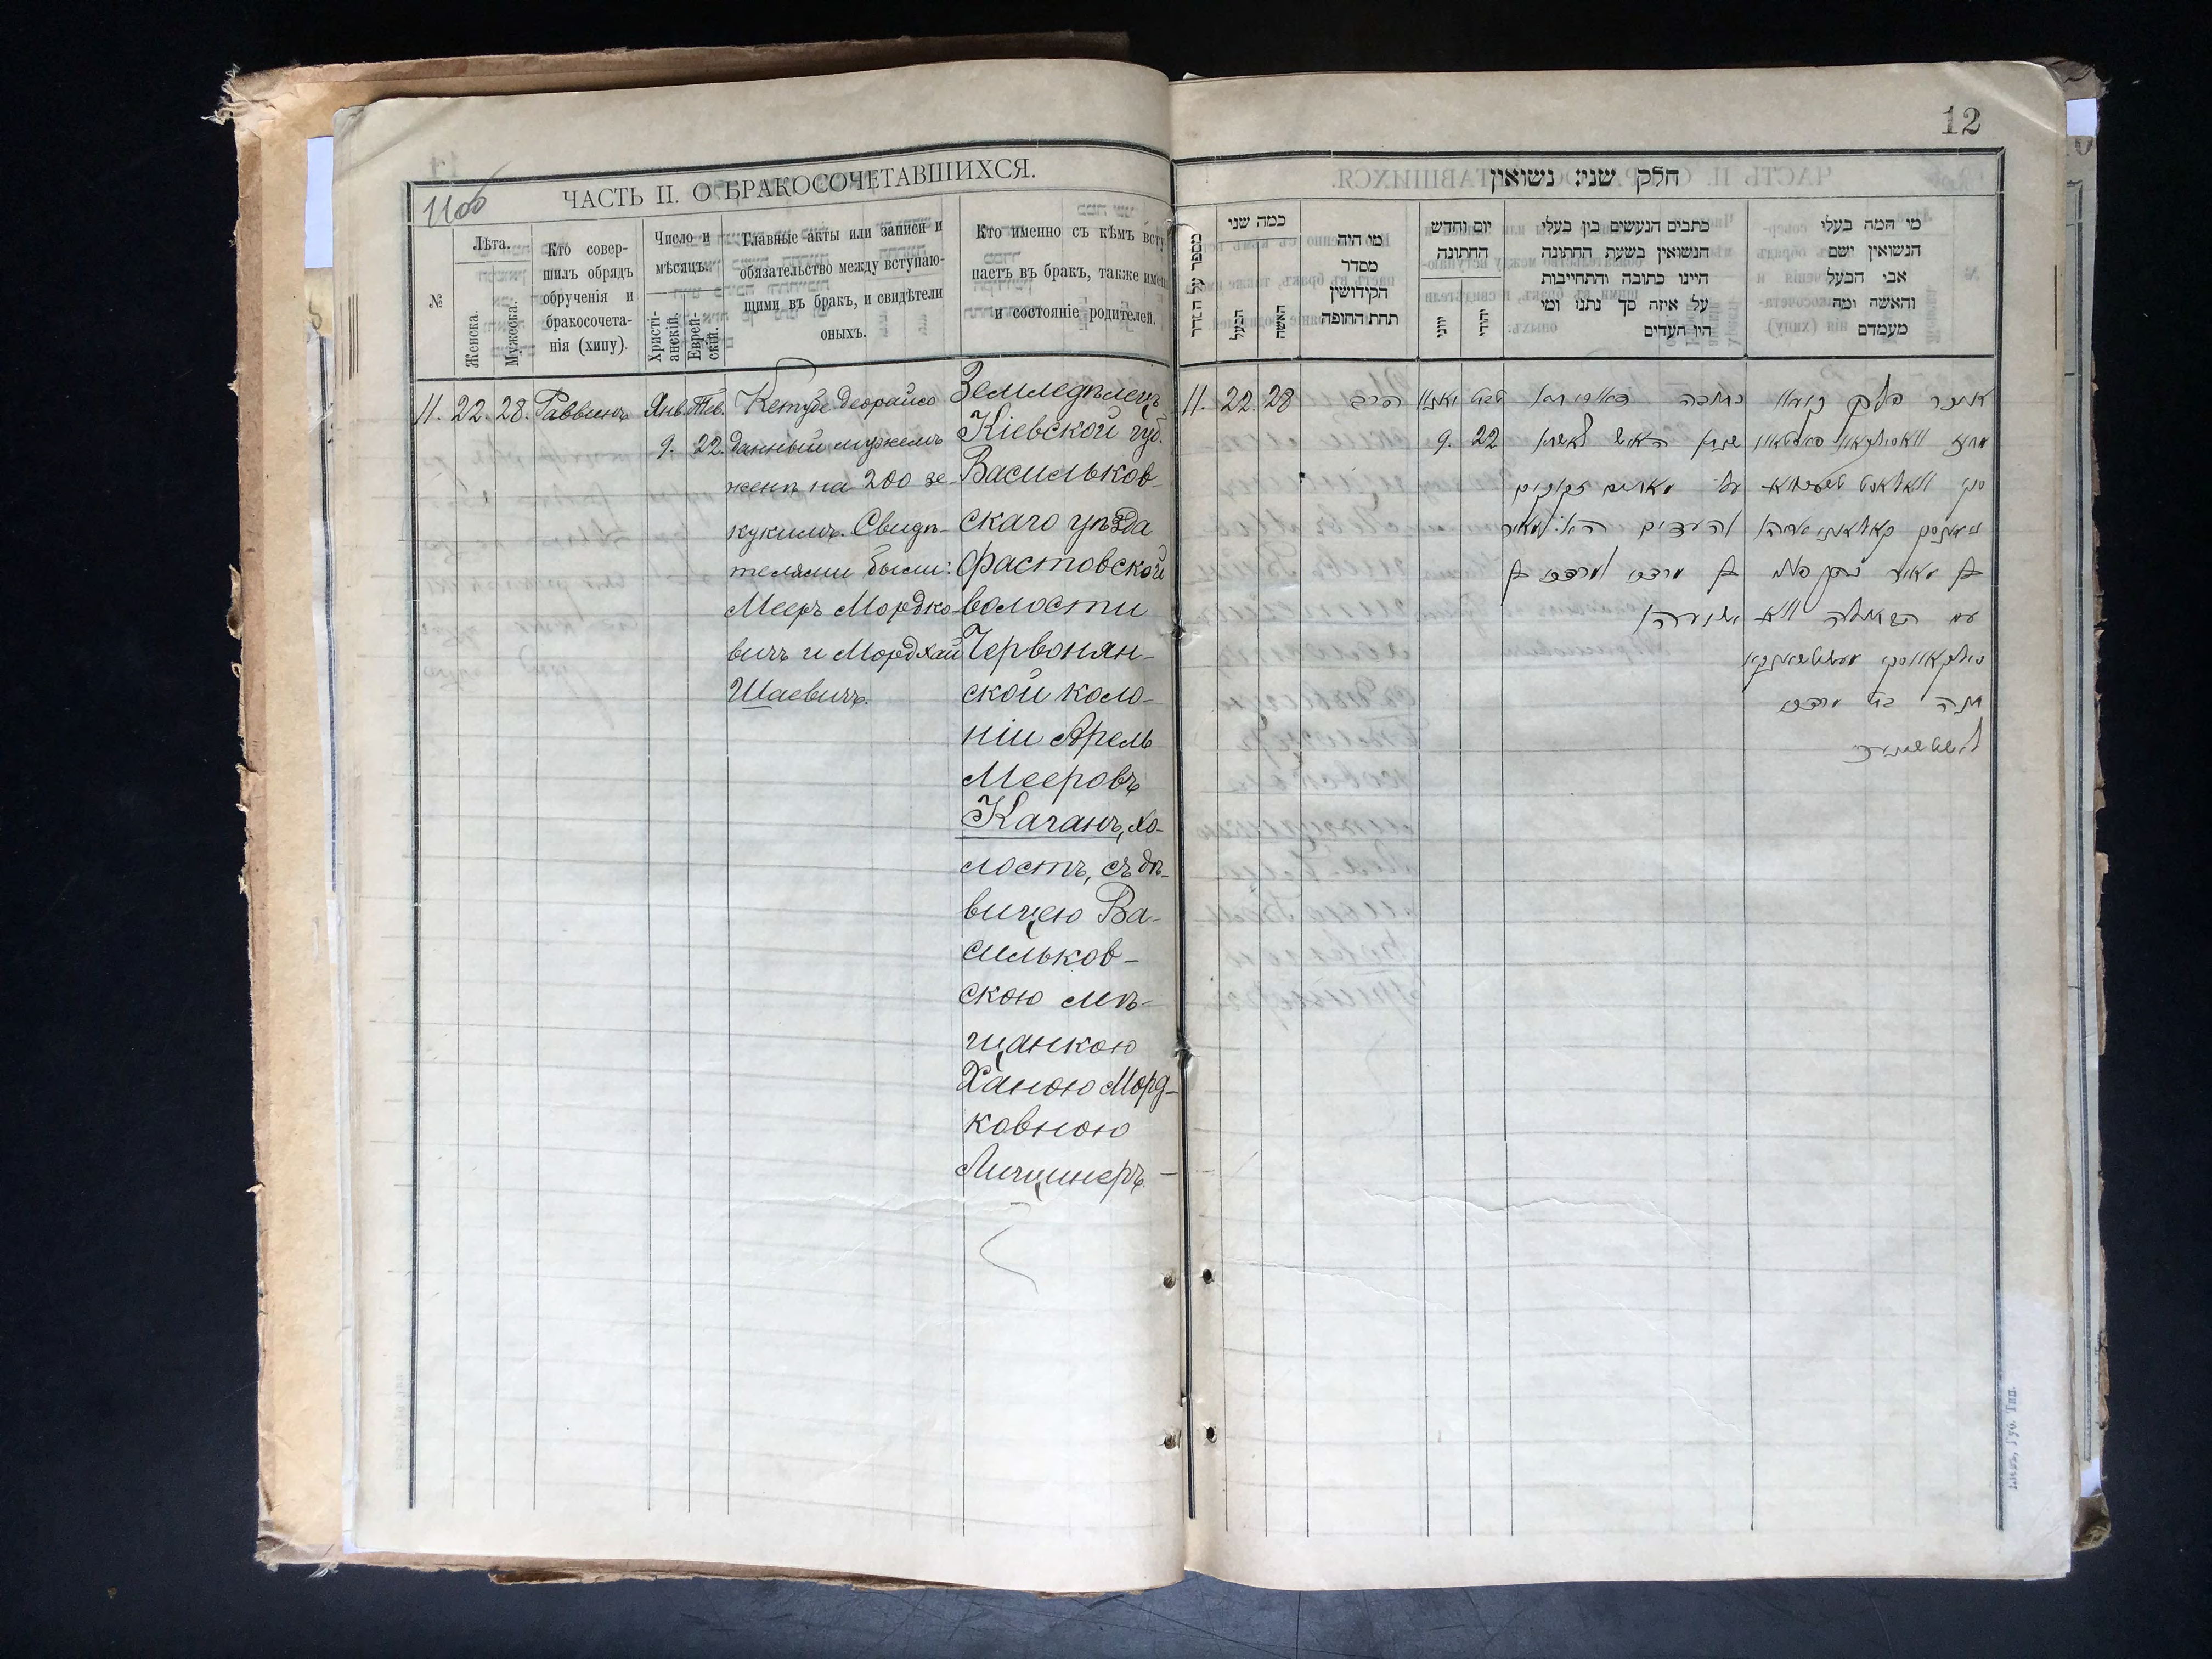 1106
ЧАСТЬ II. О БРАКОСОЧЕТАВШИХСЯ.
№
Лѣта.
Женска.
Мужеска.
Кто совер-
шилъ обрядъ
обрученія и
бракосочета-
нія (хипу).
Число и
мѣсяцъ.
Христі-
анскій.
Еврей-
скій.
Главные акты или записи и
обязательство между вступаю-
щими въ бракъ, и свидѣтели
оныхъ.
Кто именно съ кѣмъ всту
паетъ въ бракъ, также имен
и состояніе родителей.
11. 22. 28. Раввинъ
Янв. Тев.
9. 22.
Кетубе деорайсо
данный мужемъ
женѣ на 200 зе-
кукимъ. Свидѣ-
телями были:
Мееръ Мордко-
вичъ и Мордхай
Шаевичъ.
Земледѣлецъ
Кіевской губ.
Васильков-
скаго уѣзда
Фастовской
волости
Червонян-
ской коло-
ніи Арель
Мееровъ
Каганъ, хо-
лостъ, съ дѣ-
вицею Ва-
сильков-
скою мѣ-
щанкою
Ханою Морд-
ковною
Лищинеръ
12
חלק שני: נשואין
מספר על הסדר
כמה שני
הבעל
האשה
מי היה
מסדר
הקידושין
תחת החופה
יום וחדש
החתונה
יוני
יהודי
כתבים הנעשים בין בעלי
הנשואין בשעת החתונה
היינו כתובה והתחייבות
על איזה סך נתנו ומי
היו העדים
מי המה בעלי
הנשואין ושם
אבי הבעל
והאשה ומה
מעמדם
11. 22. 28
הרב
יאנוו טבת
9. 22
כתובה דאורייתא
שנתן האיש לאשתו
והעדים היו מאיר
בן מרדכי ומרדכי בן
חנה בת מרדכי
Кіевъ, Губ. Тип.